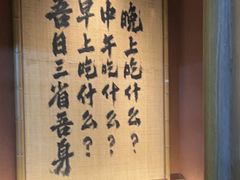 吾日三省吾身
早上吃什么?
中午吃什么?
晚上吃什么?